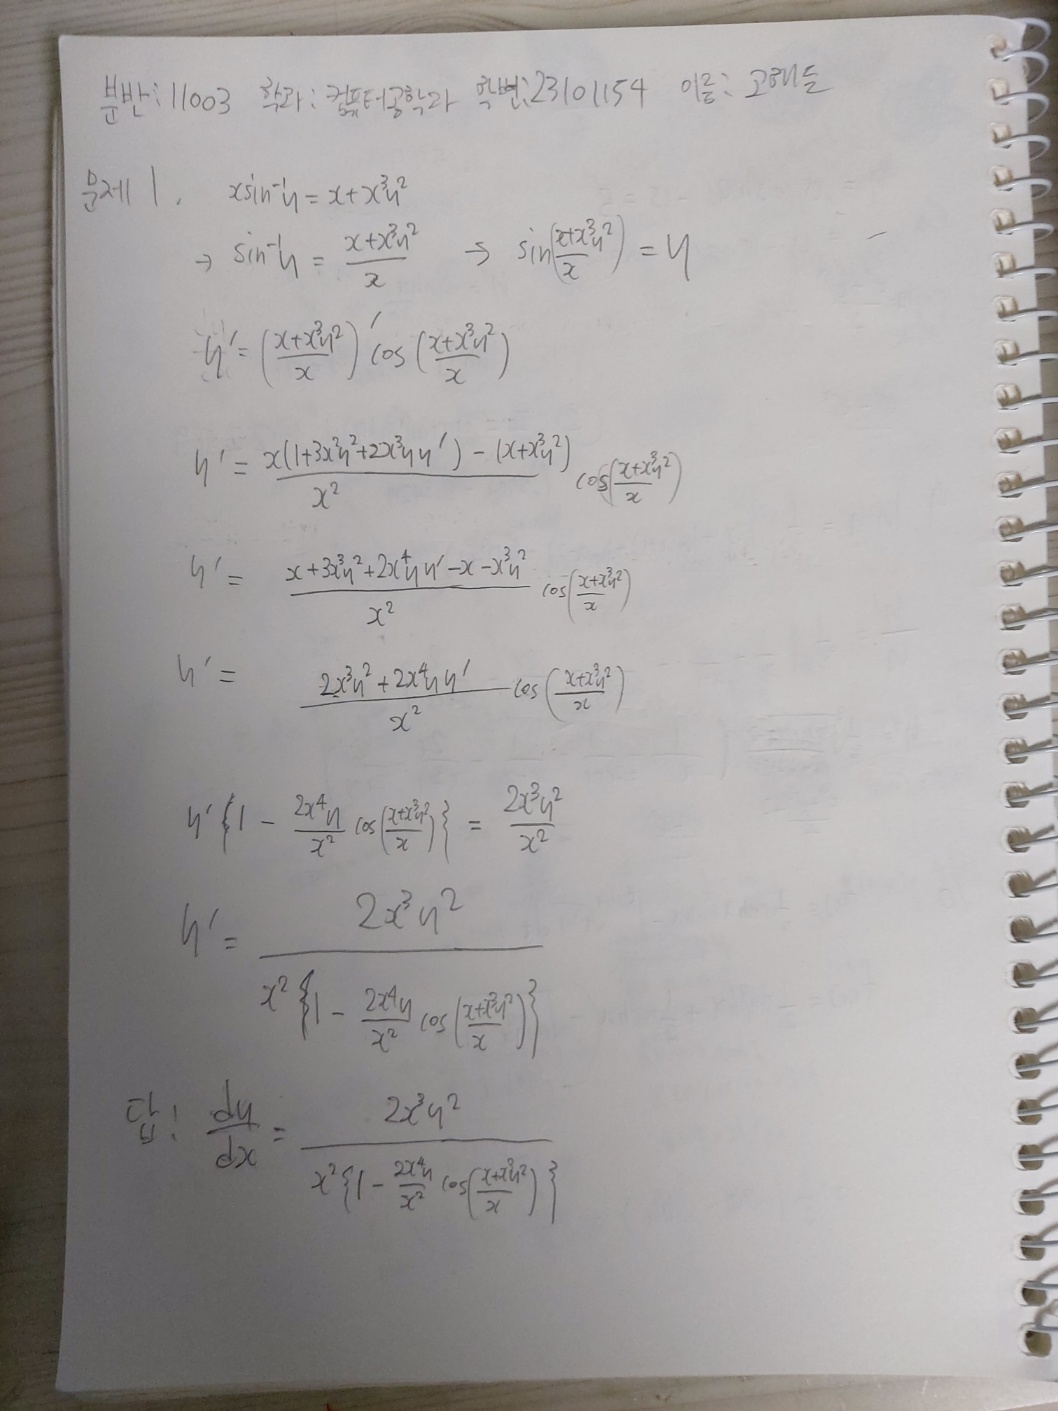 분반: 11003 학과: 컴퓨터공학과 학번: 23101154 이름: 고해든
문제 1. xsin⁻¹y = x+x³y²
→ sin⁻¹y = (x+x³y²)/x → sin((x+x³y²)/x) = y
y' = ((x+x³y²)/x)' cos((x+x³y²)/x)
y' = (x(1+3x²y²+2x³yy') - (x+x³y²))/x² cos((x+x³y²)/x)
y' = (x+3x³y²+2x⁴yy'-x-x³y²)/x² cos((x+x³y²)/x)
y' = (2x³y²+2x⁴yy')/x² cos((x+x³y²)/x)
y'{1 - 2x⁴y/x² cos((x+x³y²)/x)} = 2x³y²/x²
y' = 2x³y²/(x²{1 - 2x⁴y/x² cos((x+x³y²)/x)})
답: dy/dx = 2x³y²/(x²{1 - 2x⁴y/x² cos((x+x³y²)/x)})